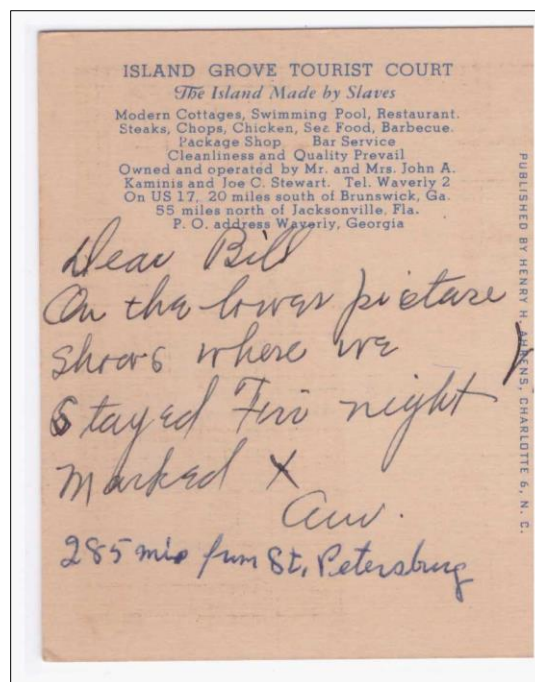 ISLAND GROVE TOURIST COURT
The Island Made by Slaves
Modern Cottages, Swimming Pool, Restaurant.
Steaks, Chops, Chicken, Sea Food, Barbecue.
Package Shop Bar Service
Cleanliness and Quality Prevail
Owned and operated by Mr. and Mrs. John A.
Kaminis and Joe C. Stewart. Tel. Waverly 2
On US 17, 20 miles south of Brunswick, Ga.
55 miles north of Jacksonville, Fla.
P. O. address Waverly, Georgia
Dear Bill
On the lower picture
shows where we
stayed night
marked X
285 mis from St, Petersburg
PUBLISHED BY HENRY H. AHRENS, CHARLOTTE 6, N. C.